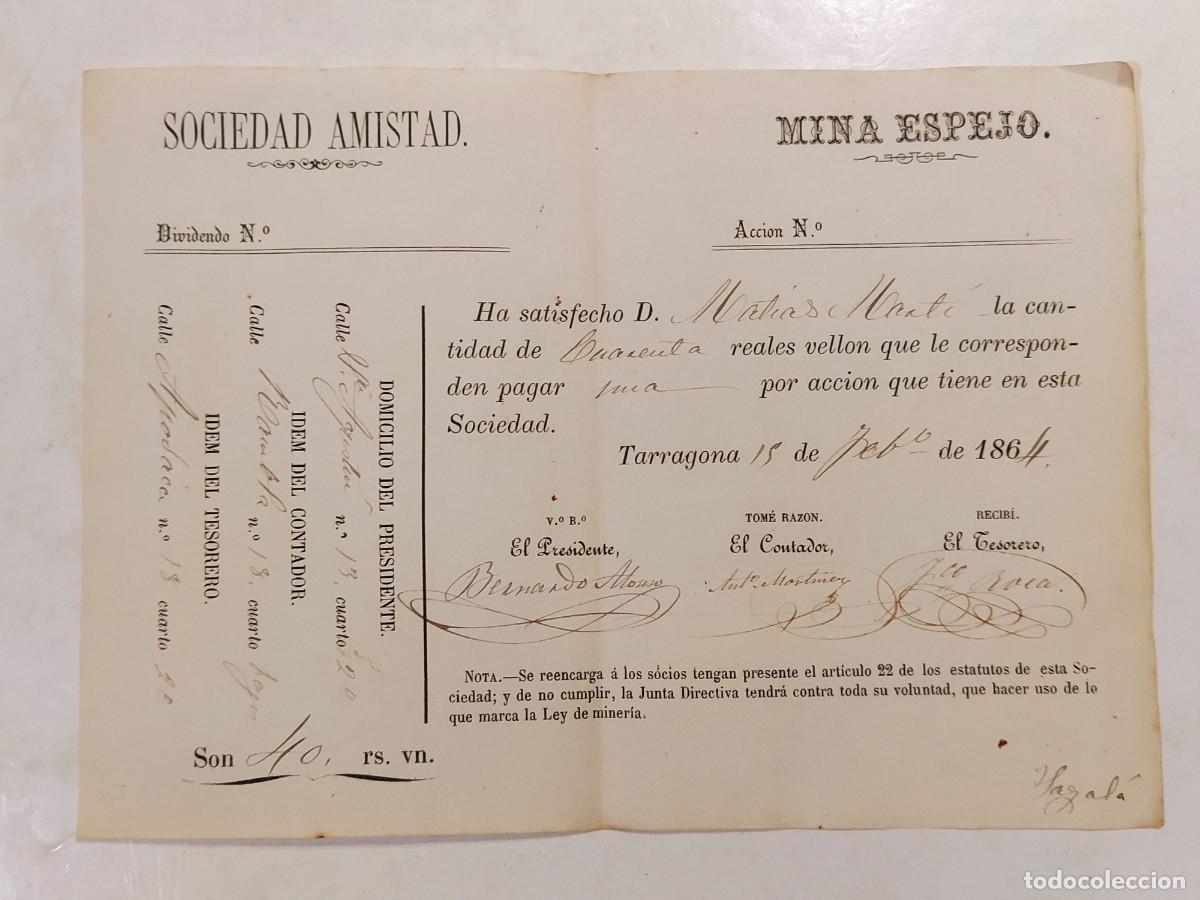 SOCIEDAD AMISTAD.
MINA ESPEJO.
Dividendo N.º
Accion N.º
Ha satisfecho D. Matias Martí la can-
tidad de Cuarenta reales vellon que le correspon-
den pagar por accion que tiene en esta
Sociedad.
Tarragona 15 de Febº de 1864.
V.º B.º
El Presidente,
Bernardo Alonso
TOMÉ RAZON.
El Contador,
Antº Martinez
RECIBÍ.
El Tesorero,
Fco Roca.
NOTA.—Se reencarga á los sócios tengan presente el artículo 22 de los estatutos de esta So-
ciedad; y de no cumplir, la Junta Directiva tendrá contra toda su voluntad, que hacer uso de lo
que marca la Ley de minería.
DOMICILIO DEL PRESIDENTE.
Calle Sn. Agustin n.º 13, cuarto 2º
IDEM DEL CONTADOR.
Calle Rambla n.º 18, cuarto
IDEM DEL TESORERO.
Calle Apodaca n.º 18 cuarto 2º
Son 40, rs. vn.
todocoleccion